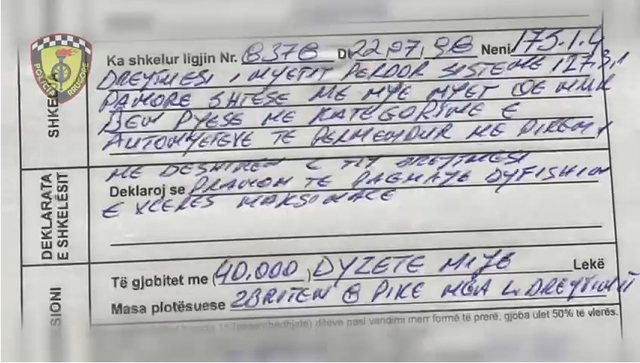 POLICIA RRUGORE
Ka shkelur ligjin Nr. 8378 Dt 22,07,98 Neni 175.1.4
DREJTUESI I MJETIT PERDOR SISTEME 127,3,1
PAMORE SHTESE ME NJE MJET QE NUK
BEN PJESE NE KATEGORINE E
AUTOMJETEVE TE PERMENDUR NE PIKEN 1
SHKEL
ME DESHIREN E TIJ DREJTUESI
Deklaroj se PRANON TE PAGUAJE DYFISHIN
E
MAKSIMALE
DEKLARATA
E SHKELËSIT
Të gjobitet me 40.000, DYZETE MIJE Lekë
Masa plotësuese ZBRITEN 8 PIKE NGA L. DREJTIMIT
SIONI
ditëve pasi vendimi merr formë të prerë, gjoba ulet 50% të vlerës.